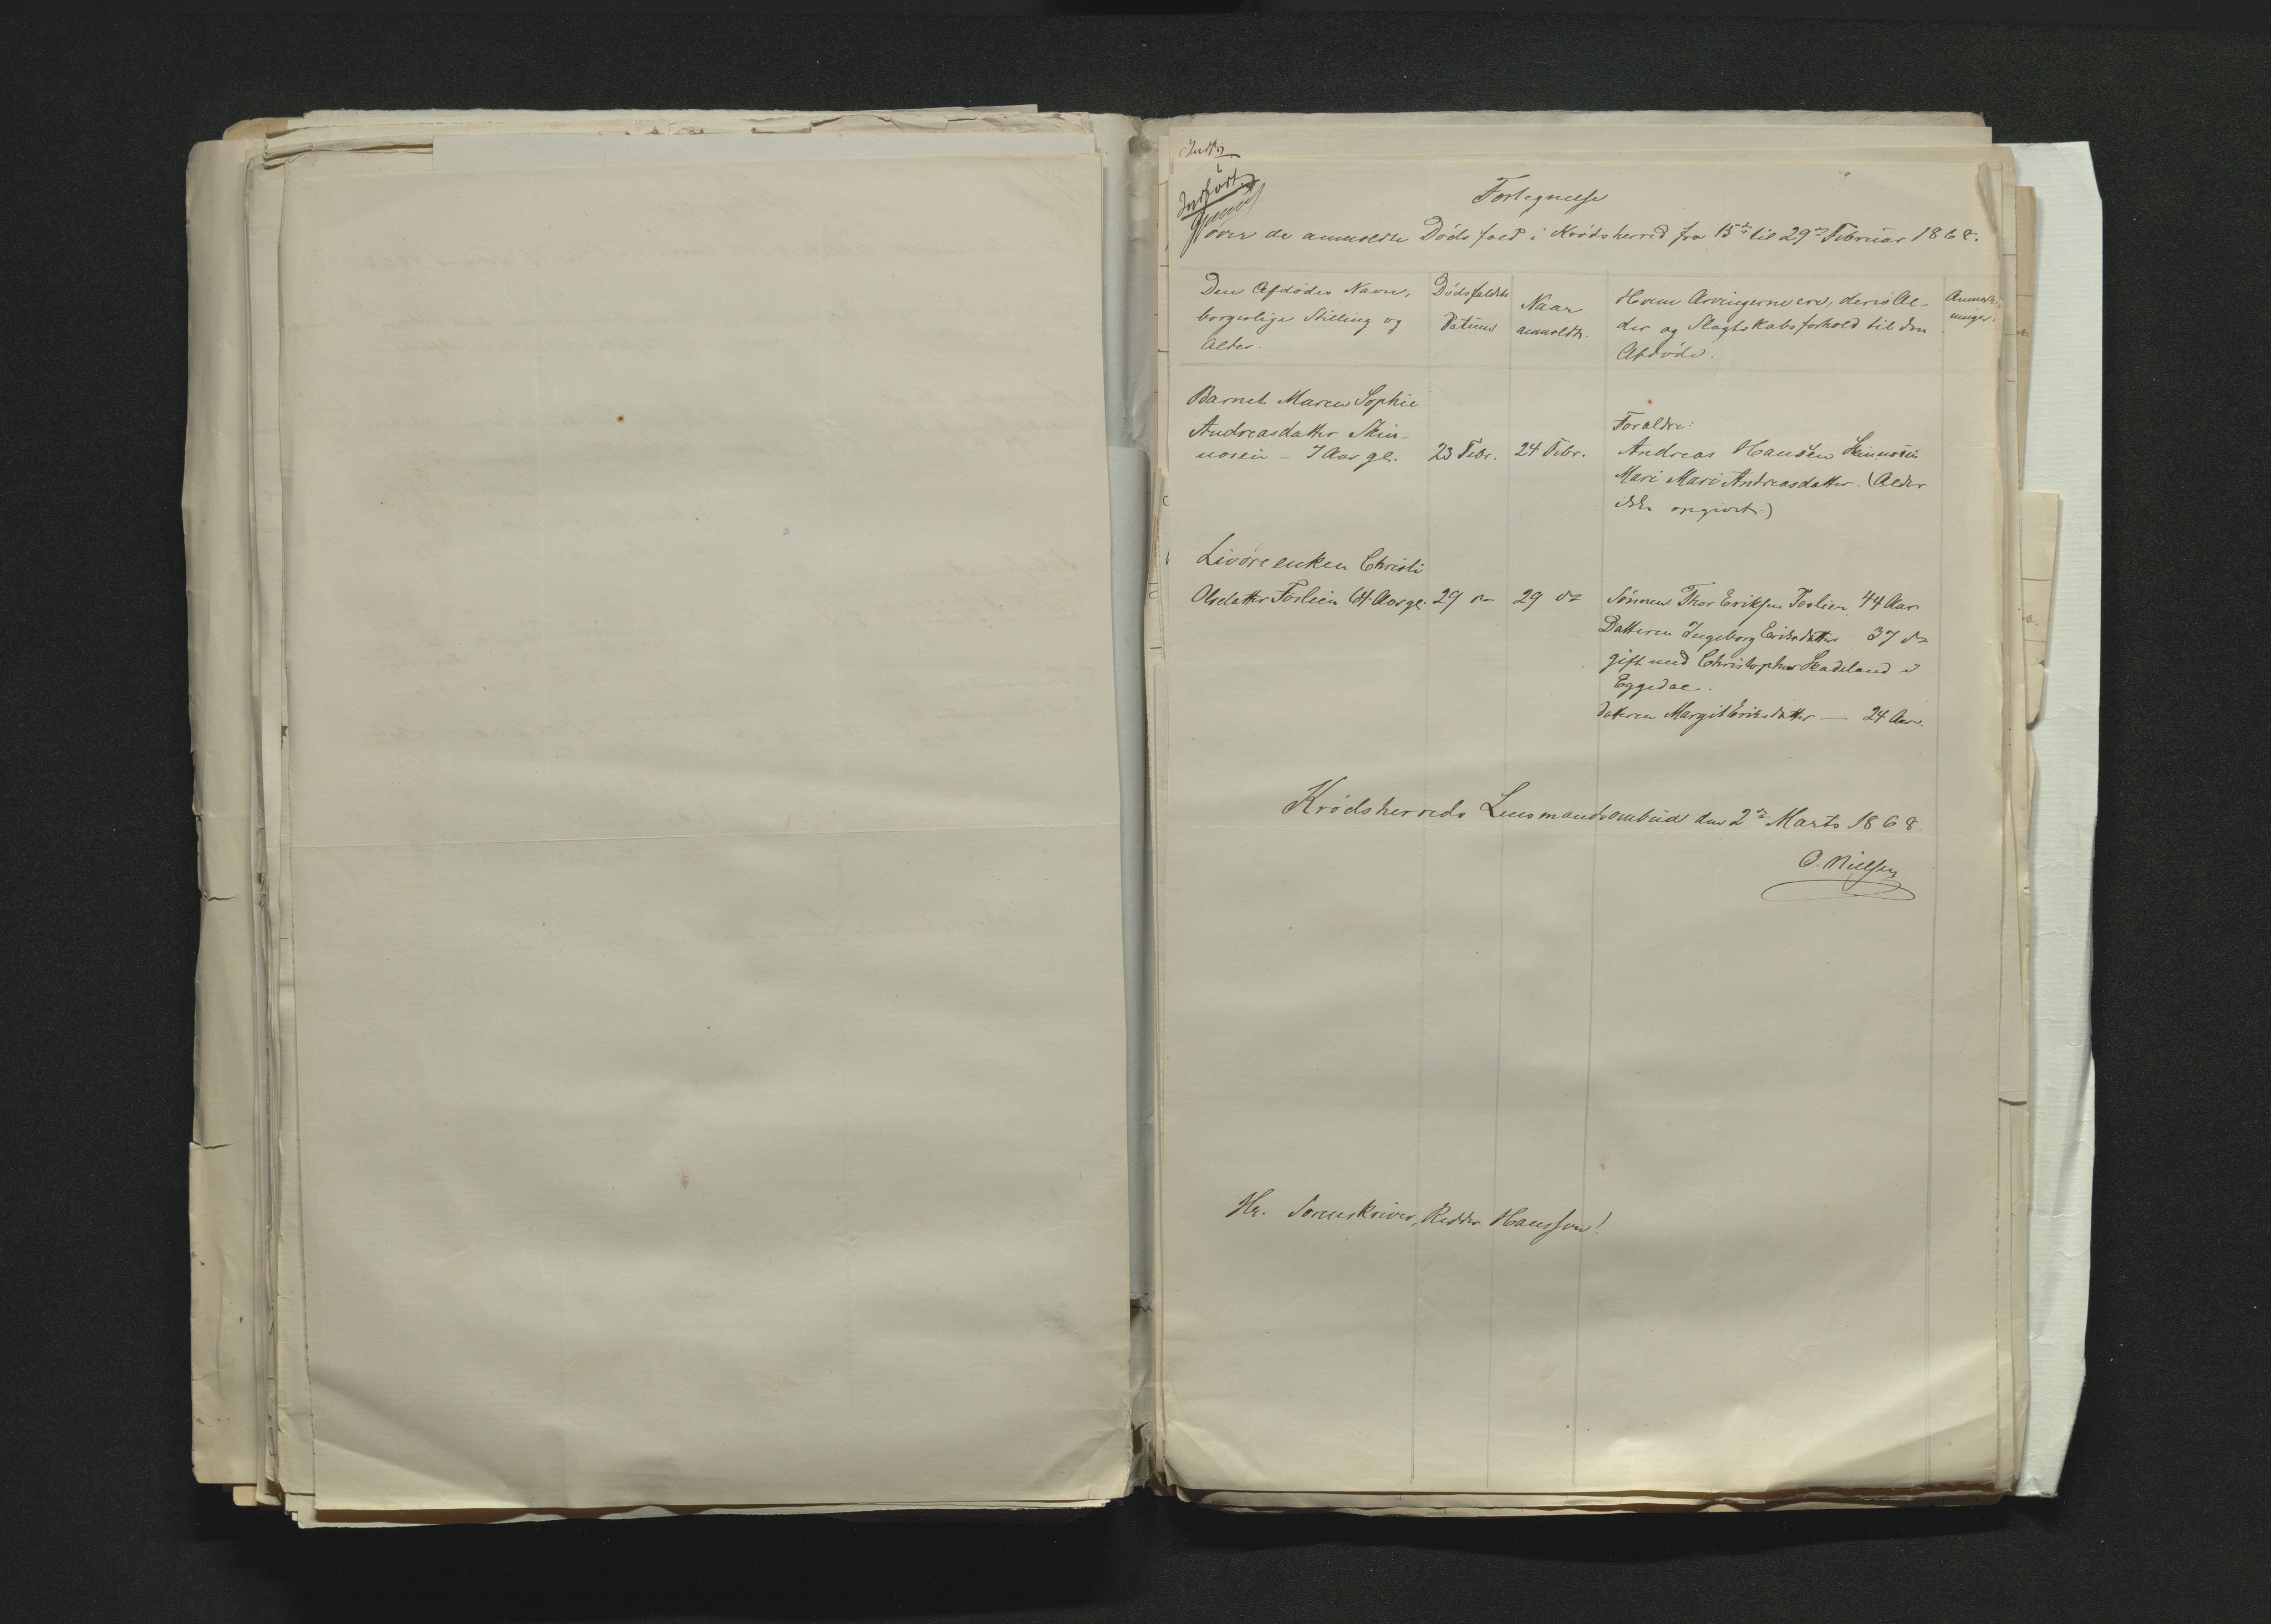 Indført
Fortegnelse
over de anmeldte Dödsfald i Krödsherred fra 15de til 29de Februar 1868.
Den Afdödes Navn,
borgerlige Stilling og
Alder.
Dödsfaldets
Datum
Naar
anmeldt.
Hvem Arvingerne ere, deres Al-
der og Slagtskabsforhold til den
Afdöde.
Anmærk-
ninger.
Barnet Maren Sophie
Andreasdatter Skin-
nesein - 7 Aar gl. 23 Febr. 24 Febr.
Forældre:
Andreas Hansen Skinnesein
Mari Mari Andreasdatter. (Alder
ikke opgivet.)
Livöreenken Christi
Olsdatter Forlien 64 Aar gl. 29 do 29 do Sönnen Thor Eriksen Forlien 44 Aar
Datteren Ingeborg Eriksdatter 37 do
gift med Christopher Skadeland i
Eggedal.
datteren Margit Eriksdatter — 24 Aar.
Krödsherreds Lensmandsombud den 2den Marts 1868.
O. Nielsen
Hr. Sorenskriver, Ridder Hansson!